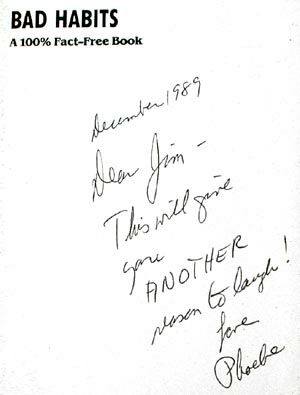 BAD HABITS
A 100% Fact-Free Book
December 1989
Dear Jim -
This will give
you
ANOTHER
reason to laugh!
Love
Phoebe